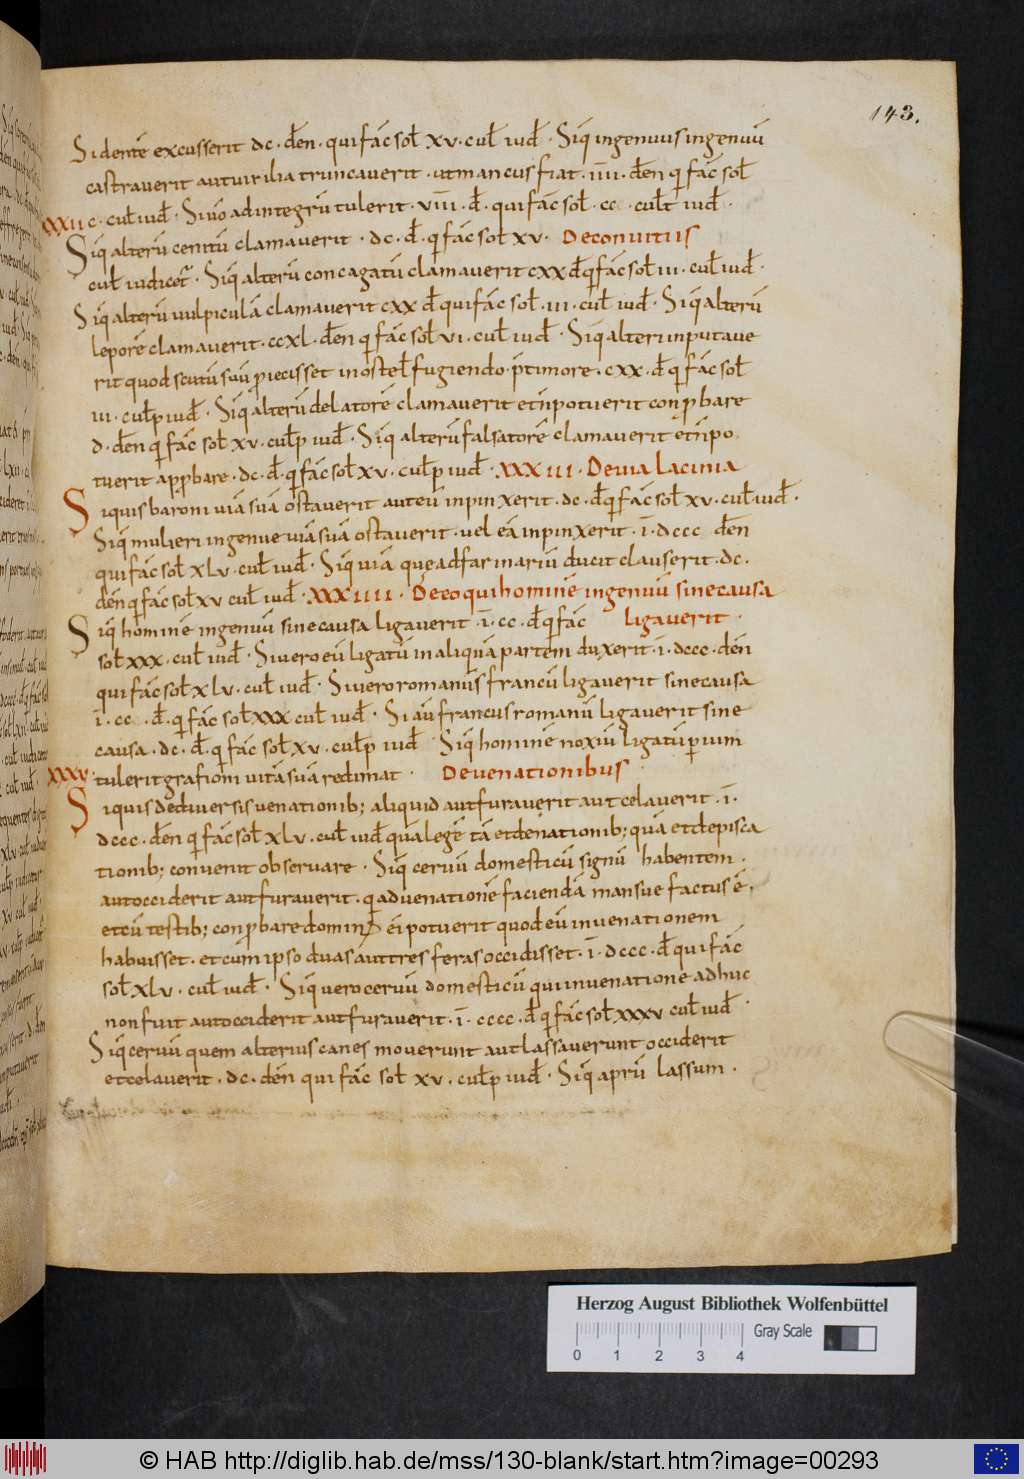 143.
Si dentē excusserit dc · deń · qui fać sol xv · cul iud · Siq̄ ingenuus ingenuū
castraverit aut virilia truncaverit · ut mancus fiat · iiii · deń q̄ fać sol
c · cul iud · Si v̄o ad integrū tulerit · viii · d̄ · qui fać sol · cc · cult iud ·
XXXII
Siq̄ alterū cenitū clamaverit · dc · d̄ · q̄ fać sol xv · De convitiis
cul iudicet̄ · Siq̄ alterū concagatū clamaverit cxx d̄ q̄ fać sol iii · cul iud ·
Siq̄ alterū vulpiculā clamaverit cxx d̄ qui fać sol · iii · cul iud · Siq̄ alterū
leporē clamaverit · ccxl · deń q̄ fać sol vi · cul iud · Siq̄ alteri inputave
rit quod scutū suū p̄iecisset in ostel fugiendo · p̄ timore · cxx · d̄ q̄ fać sol
iii · culp iud · Siq̄ alterū delatorē clamaverit et n̄ potuerit conp̄bare
d · deń q̄ fać sol xv · culp iud · Siq̄ alterū falsatorē clamaverit et n̄ po
tuerit app̄bare · dc · d̄ · q̄ fać sol xv · culp iud · XXXIII · De via lacinia
Siquis baroni viā suā ostaverit aut eū inpinxerit · dc · d̄ q̄ fać sol xv · cul iud ·
Siq̄ mulieri ingenue viā suā ostaverit · vel eā inpinxerit · ī · dccc deń
qui fać sol xlv · cul iud · Siq̄ viā que ad farinariū ducit clauserit · dc ·
deń q̄ fać sol xv cul iud · XXXIIII · De eo qui hominē ingenuū sine causa
Siq̄ hominē ingenuū sine causa ligaverit ī · cc · d̄ q̄ fać ligaverit ·
sol xxx · cul iud · Si vero eū ligatū in aliquā partem duxerit · ī · dccc · deń
qui fać sol xlv · cul iud · Si vero romanus francū ligaverit sine causa
ī · cc · d̄ · q̄ fać sol xxx cul iud · Si aū francus romanū ligaverit sine
causa · dc · d̄ · q̄ fać sol xv · culp iud Siq̄ hominē noxiū ligatū p̄ vim
XXXV · tulerit grafioni vitā suā redimat · De venationibus
Siquis de diversis venationib; aliquid aut furaverit aut celaverit · ī ·
dccc · deń q̄ fać sol xlv · cul iud qua lege tā et de natiōnib; quā et de pisca
tionib; convenit observare · Siq̄ cervū domesticū signū habentem ·
aut occiderit aut furaverit · q̄ ad venationē faciendā mansue factus ē ·
et cū testib; conp̄bare domin ei potuerit quod eū in venationem
habuisset · et cum ipso duas aut tres feras occidisset · ī · dccc · d̄ qui fać
sol xlv · cul iud · Siq̄ vero cervū domesticū qui in venatione adhuc
non fuit aut occiderit aut furaverit · ī · cccc · d̄ q̄ fać sol xxxv cul iud ·
Siq̄ cervū quem alterius canes moverunt aut lassaverunt occiderit
et celaverit · dc · deń qui fać sol xv · culp iud · Siq̄ aprū lassum ·
Herzog August Bibliothek Wolfenbüttel
Gray Scale
0 1 2 3 4
© HAB http://diglib.hab.de/mss/130-blank/start.htm?image=00293